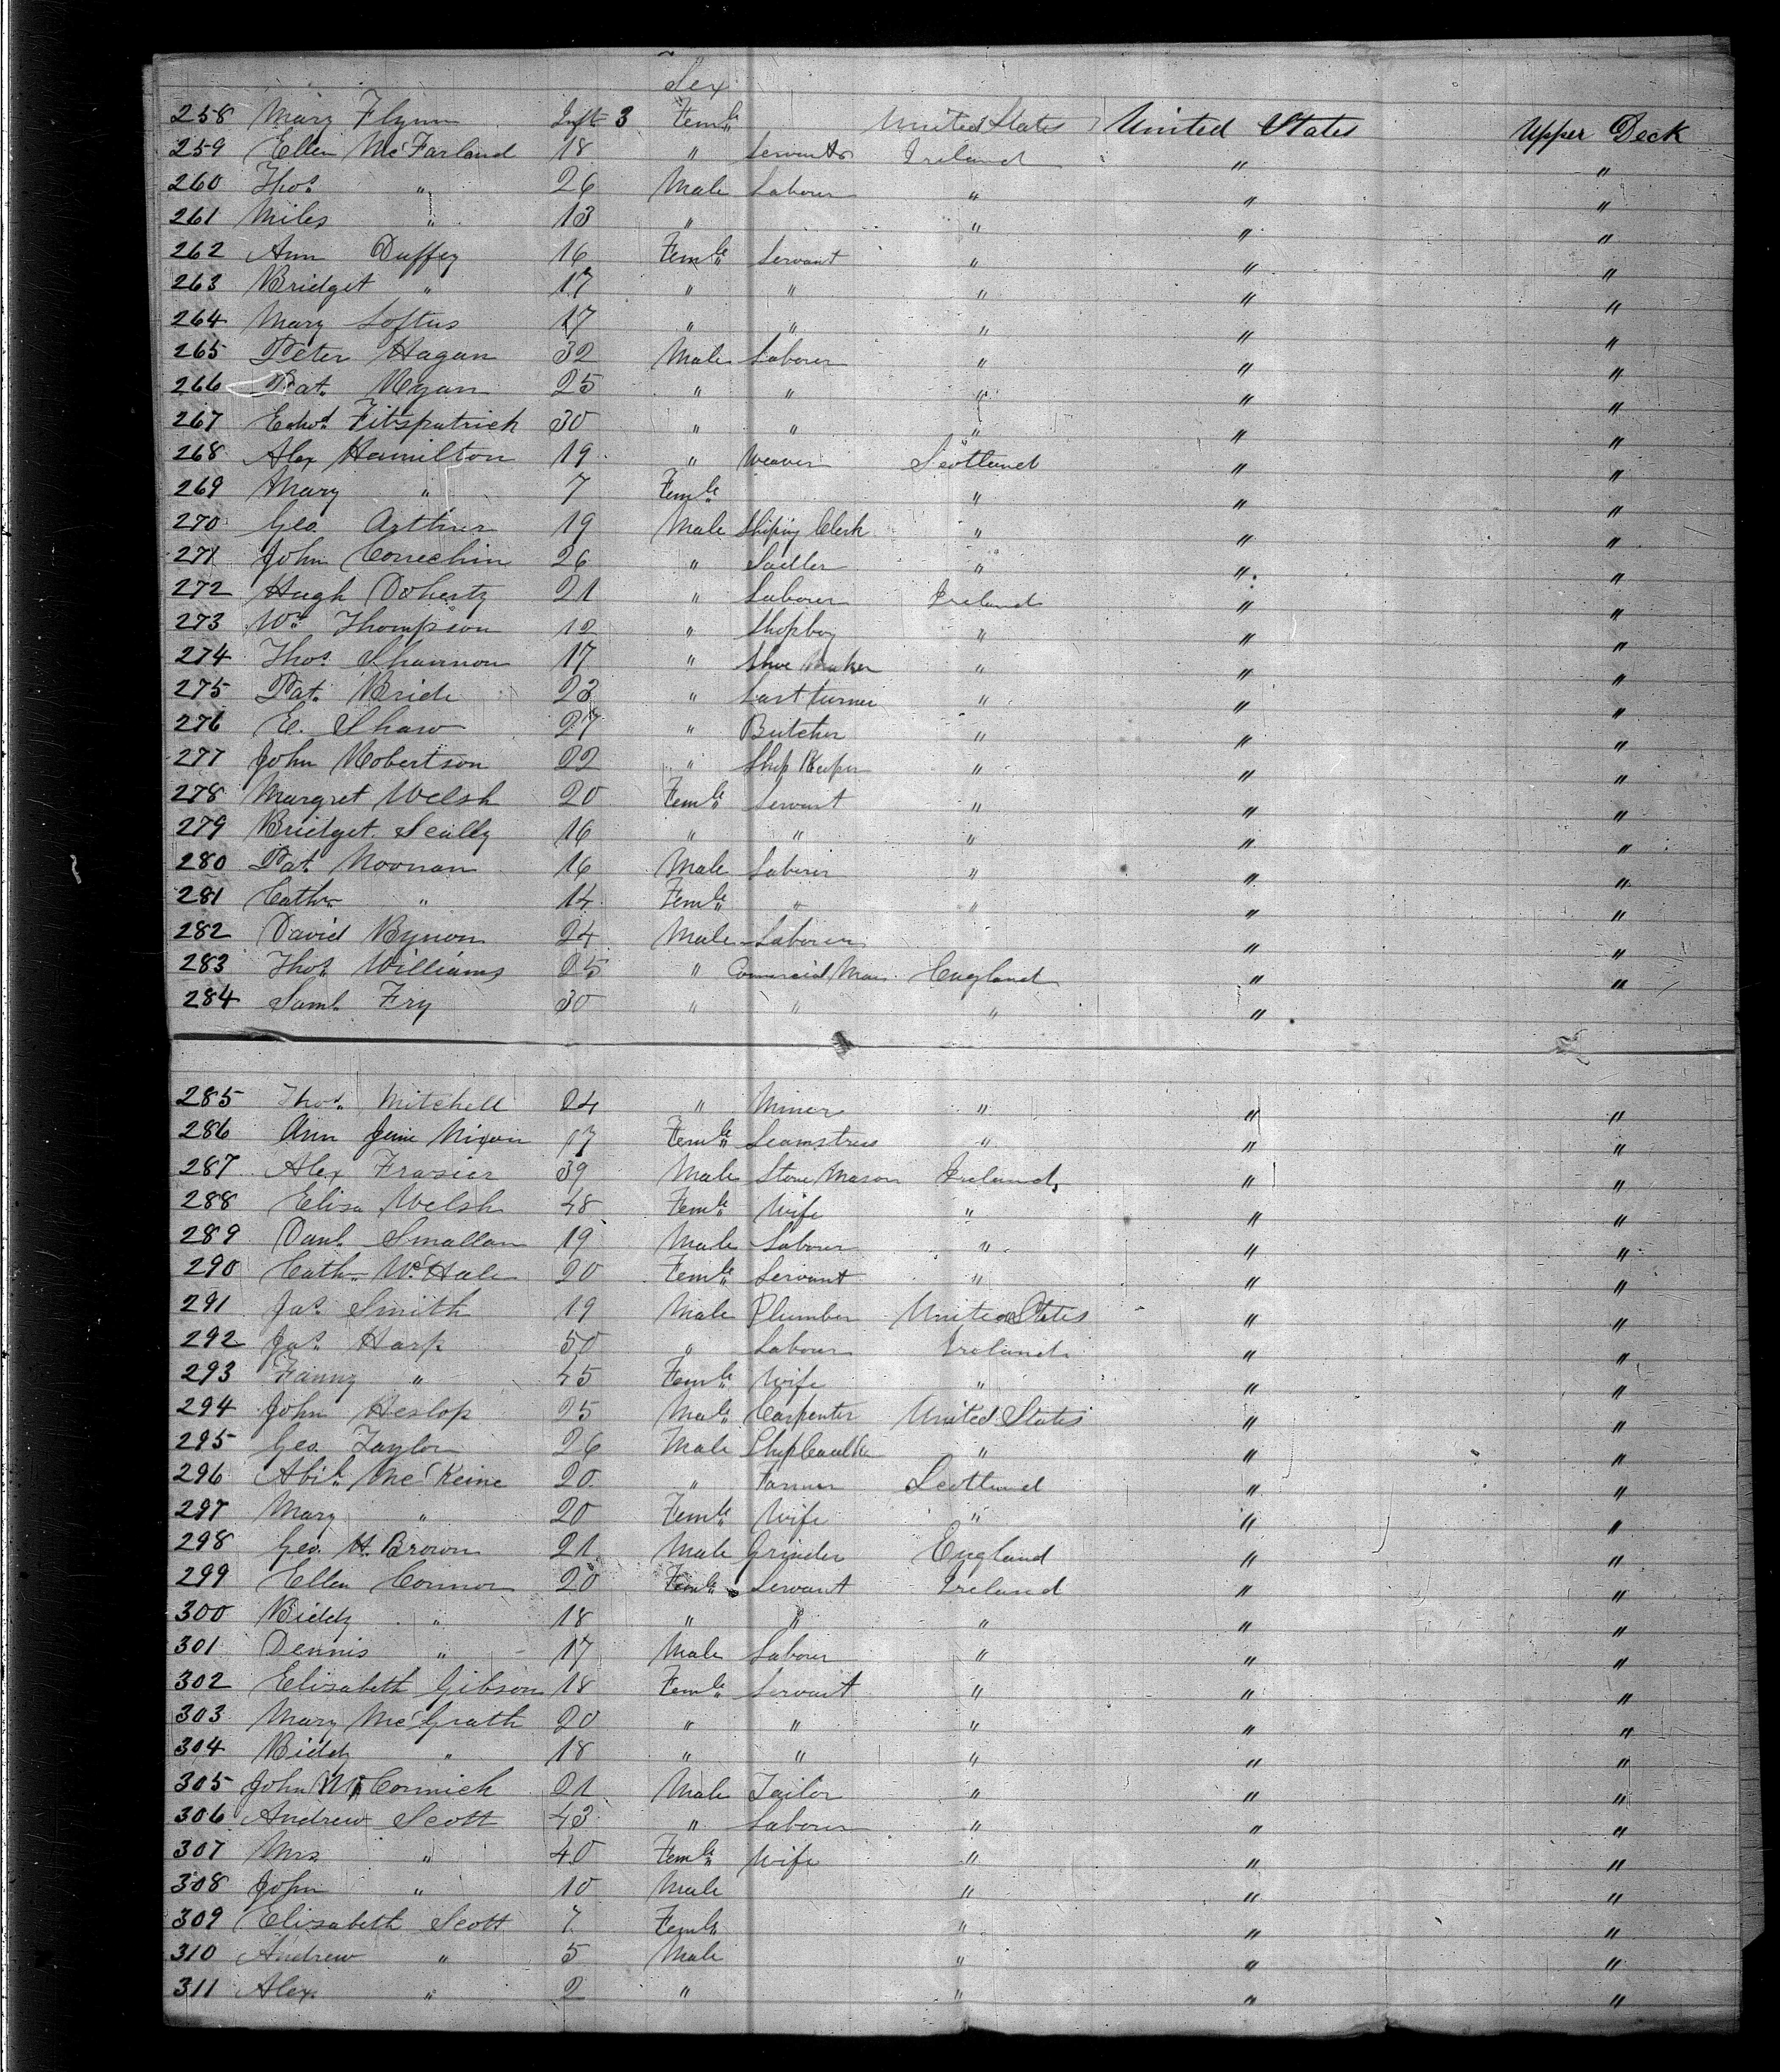 Sex
258 Mary Flynn Inft 3 Femle United States United States Upper Deck
259 Ellen McFarland 18 " Servant Ireland " "
260 Thos " 26 Male Laborer " " "
261 Miles " 13 " " " "
262 Ann Duffey 16 Femle Servant " " "
263 Bridget " 17 " " " " "
264 Mary Loftus 17 " " " " "
265 Peter Hagan 32 Male Laborer " " "
266 Pat. Ryan 25 " " " " "
267 Edwd Fitspatrick 30 " " " " "
268 Alex Hamilton 19 " Weaver Scotland " "
269 Mary " 7 Femle " " "
270 Geo. Arthur 19 Male Shiping Clerk " " "
271 John Correchin 26 " Sadler " " "
272 Hugh Doherty 21 " Laborer Ireland " "
273 Wm Thompson 12 " Shopboy " " "
274 Thos Shannon 17 " Shoe Maker " " "
275 Pat. Bride 23 " Last turner " " "
276 E. Shaw 27 " Butcher " " "
277 John Robertson 22 " Shop Keeper " " "
278 Margret Welsh 20 Femle Servant " " "
279 Bridget Scally 16 " " " " "
280 Pat. Noonan 16 Male Laborer " " "
281 Cathn " 14 Femle " " " "
282 David Bynon 24 Male Laborer " "
283 Thos. Williams 25 " Commercial Man England " "
284 Saml. Fry 30 " " " "
285 Thos. Mitchell 24 " Miner " " "
286 Ann Jane Nixon 17 Femle Seamstress " " "
287 Alex Frasier 39 Male Stone Mason Ireland " "
288 Eliza Welsh 48 Femle Wife " " "
289 Danl. Smallan 19 Male Laborer " " "
290 Cathn McHale 20 Femle Servant " " "
291 Jas Smith 19 Male Plumber United States " "
292 Jas. Harp 50 " Laborer Ireland " "
293 Fanny " 45 Femle Wife " " "
294 John Heslop 25 Male Carpenter United States " "
295 Geo. Taylor 26 Male Ship Caulker " " "
296 McKeine 20 " Farmer Scotland " "
297 Mary " 20 Femle Wife " " "
298 Geo. H. Brown 21 Male Grinder England " "
299 Ellen Connor 20 Femle Servant Ireland " "
300 Biddy " 18 " " " " "
301 Dennis " 17 Male Laborer " " "
302 Elizabeth Gibson 18 Femle Servant " " "
303 Mary McGrath 20 " " " " "
304 Biddy " 18 " " " " "
305 John McCormick 21 Male Tailor " " "
306 Andrew Scott 43 " Laborer " " "
307 Mrs. " 40 Femle Wife " " "
308 John " 10 Male " " "
309 Elizabeth Scott 7 Femle " " "
310 Andrew " 5 Male " " "
311 Alex. " 2 " " " "